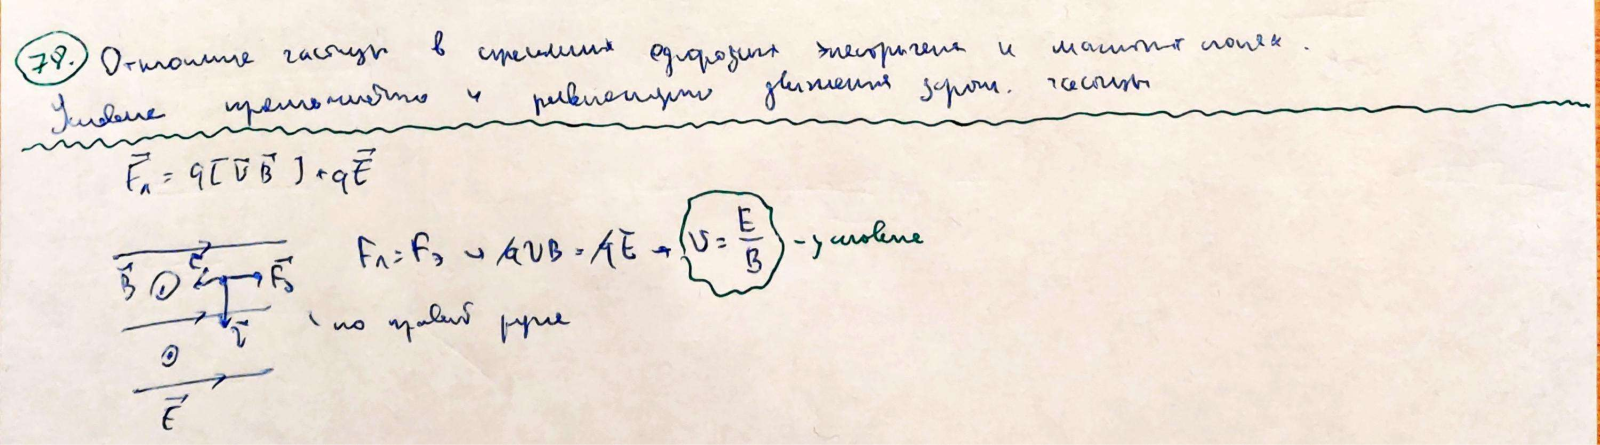 78. Отклонение частицы в скрещенных однородных электрическом и магнитном полях.
Условие прямолинейного и равномерного движения заряж. частицы
F⃗л = q[v⃗ B⃗] + qE⃗
Fл = Fэ → qvB = qE → v = E/B - условие
B⃗ F⃗л F⃗э
v⃗ по правой руке
E⃗